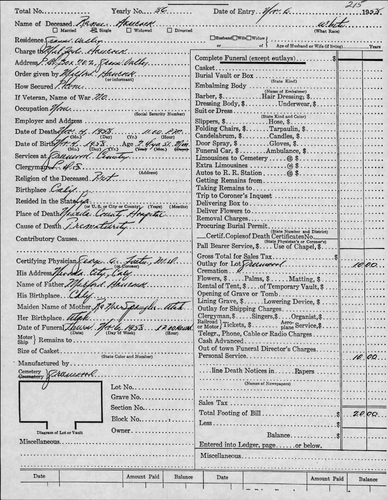 Total No. Yearly No. 56 Date of Entry Nov. 6, 1953
215
Name of Deceased Hancock White
(What Race)
Married Single Widowed Divorced
Husband Wife Widow of
Age of Husband or Wife (if living) Years
Residence Grass Valley
Charge to Hancock
Address P.O. Box 402, Grass Valley
Order given by Hancock
(or informant)
How Secured Phone
If Veteran, Name of War No
Occupation None
(Social Security Number)
Employer and Address
Date of Death Nov. 4, 1953 11:00 P.M.
Date of Birth Nov. 4, 1953 Age
Services at County
Clergyman
(Address)
Religion of the Deceased
Birthplace Calif.
Resided in the State
(or U.S. City or County) (Years) (Months)
Place of Death Nevada County Hospital
Cause of Death Prematurity
Contributory Causes
Certifying Physician George C. Foster, M.D.
His Address Nevada City, Calif.
Name of Father Hancock
His Birthplace Calif.
Maiden Name of Mother
Her Birthplace Utah
Date of Funeral Nov. 6, 1953
(Date) (Day of Week) (Hour)
Motor
Ship Remains
Size of Casket
(State Color and Number)
Manufactured by
Cemetery
Crematory
Lot No.
Grave No.
Section No.
Block No.
Owner
Diagram of Lot or Vault
Miscellaneous
Complete Funeral (except outlays) $
Casket
Burial Vault or Box
(State Kind)
Embalming Body
(Name of Embalmer)
Barber, Hair Dressing, $
Dressing Body, Underwear, $
Suit or Dress
(State Kind and Color)
Slippers, $ Hose, $
Folding Chairs, $ Tarpaulin, $
Candelabrum, $ Candles, $
Door Spray, $ Gloves, $
Funeral Car, $ Ambulance, $
Limousines to Cemetery @ $
Extra Limousines @ $
Autos to R. R. Station @ $
Getting Remains from
Taking Remains to
Trip to Coroner's Inquest
Delivering Box to
Deliver Flowers
Removing Remains
Procuring Burial Permit
(State Number and District)
Certif. Copies of Death Certificates No.
(State Physician's or Coroner's)
Pall Bearer Service, $ Use of Chapel, $
Gross Total for Sales Tax $
Outlay for Lot 10.00
Cremation
Flowers, $ Palms, $ Matting, $
Rental of Tent, $ of Temporary Vault, $
Opening of Grave or Tomb
Lining Grave, $ Lowering Device, $
Outlay for Shipping Charges
Clergyman, $ Singers, $ Organist, $
Railroad or Motor Tickets, $ Aeroplane Service, $
Telegr., Phone, Cable or Radio Charges
Cash Advanced
Out of town Funeral Director's Charges
Personal Service 10.00
line Death Notices in Papers
(Names of Newspapers)
Sales Tax
Total Footing of Bill $ 20.00
Less
Balance $
Entered into Ledger, page or below.
Miscellaneous
Date Amount Paid Balance Date Amount Paid Balance